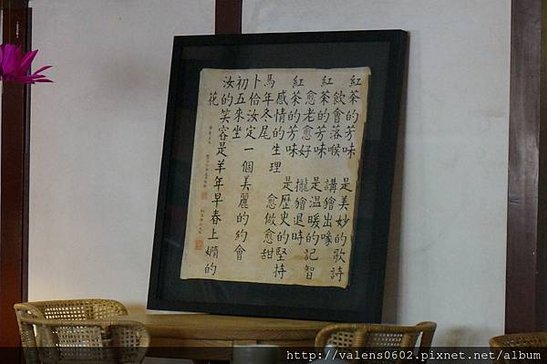 紅茶的芳味　是美妙的歌詩
飲會落喉　講繪出喙
紅茶的芳味　是溫暖的記智
愈老愈好　攏繪退時
紅茶的芳味　是歷史的堅持
感情的生理　愈做愈甜
馬年冬尾
卜恰汝定　一個美麗的約會
初五來坐
汝的笑容是羊年早春上嫺的
花
http://valens0602.pixnet.net/album